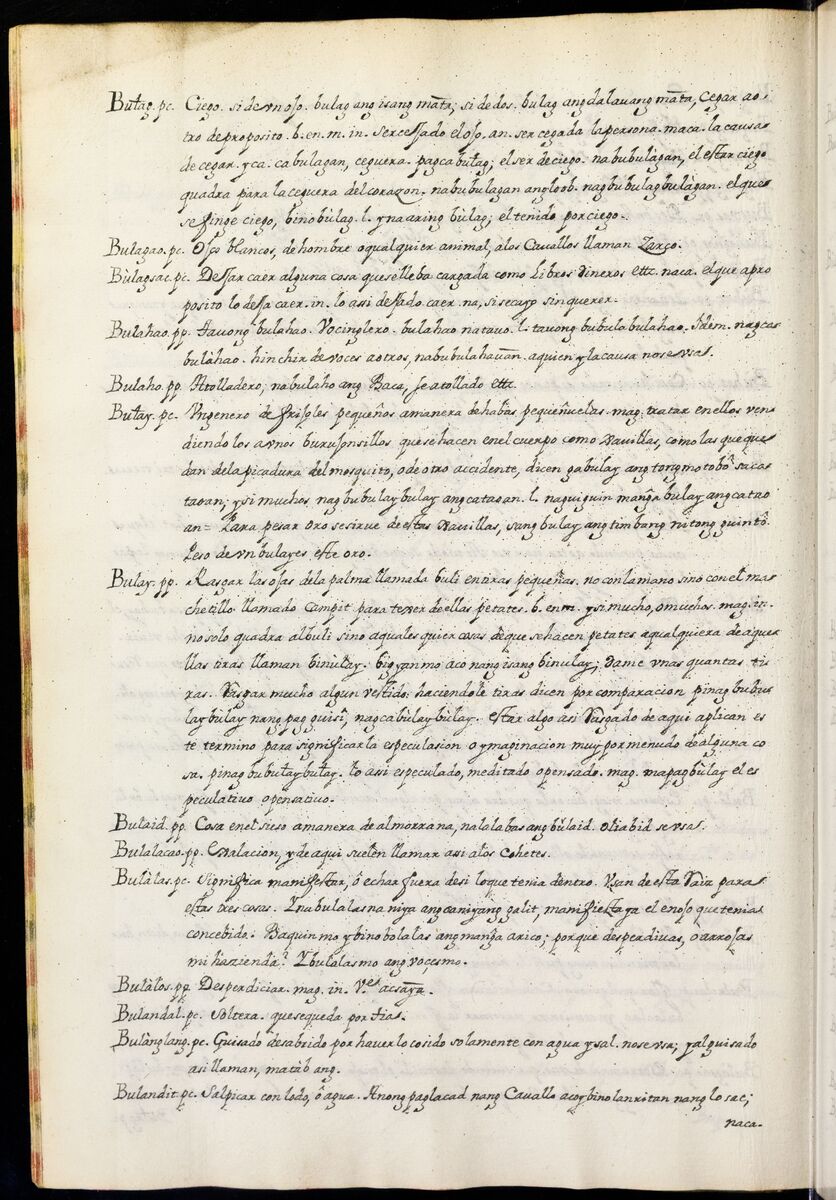 Bulag. pc. Ciego. si de vn ojo. bulag ang isang mata; si de dos. bulag ang dalauang mata, Cegar ao-
tro de proposito. b. en. m. in. ser cegado el ojo. an. ser cegada la persona. maca. la causa
de cegar. y ca. cabulagan, ceguera. pagcabulag; el ser de ciego. nabubulàgan, el estar ciego
quadra para la ceguera del corazon. nabubulagan ang loob. nagbubulagbulàgan. el que
se finge ciego, binobùlag. l. ynaaring bùlag; el tenido por ciego.
Bulagao. pc. Ojos blancos, de hombre o qualquier animal, alos Cauallos llaman Zarco.
Bùlagsac. pc. Dessar caer alguna cosa que se lleba cargada como Libros Dineros ettc. naca. el que apro
posito lo dessa caer. in. lo assi dessado caer. na, si se cayo sin querer.
Bulahao. pp. Tauong bulahao. Vocinglero. bulahao na tauo. l. tauong bubulabulahao. Idem. nagcas
bulàhao. hinchir de voces aotros, nabubulahauan. aquien y la causa nose vsa.
Bulaho. pp. Atolladero, nabulaho ang Baca, se atollado ettc.
Bulay. pc. Vn genero de frisoles pequeños amanera de habas pequeñuelas. mag. tratar en ellos ven
diendolos a vnos burujonsillos que se hacen en el cuerpo como Vauillas, como las que que
dan dela picadura del mosquito, o de otro accidente, dicen gabulay ang tongmotobo sa ca
taoan; y si muchos nagbubulaybulay ang cataoan. l. naguiguin manga bulay ang catao
an = Para pesar oro se sirue de estas Vauillas, sangbulay ang timbang nitong guintò.
Peso de vn bulay es este oro.
Bulay. pp. Rasgar las ojas dela palma llamada buli en tiras pequeñas. no con la mano sino con el ma
chetillo llamado campit para texer de ellas petates. b. en m. y si mucho, o muchos. mag. in.
no solo quadra al buli sino a qualesquier cosas de que se hacen petates a qualquiera de aque
llas tiras llaman binùlay. bigyan mo aco nang isang binulay; Dame vnas quantas ti
ras. Rasgar mucho algun vestido: haciendole tiras dicen por comparacion pinagbubu
laybùlay nang pagguisi, nagcabùlaybùlay. estar algo asi Rasgado de aqui aplican es
te termino para significar la especulasion o ymaginacion muy por menudo de alguna co
sa. pinagbubulaybulay. lo assi especulado, meditado o pensado. mag. mapagbùlay el es
peculatiuo o pensatiuo.
Bulaid. pp. Cosa en el sieso amanera de almorrana, nalalabas ang bùlaid. Oliabid se vsa.
Bulalacao. pp. Exalacion, y de aqui suelen llamar assi alos Cohetes.
Bulàlas. pc. Significa manifestar, ô echar fuera desi lo que tenia dentro. Vsan de esta Raiz para
estas tres cosas. Ynabulalas na niya ang caniyang galit, manifiesta ya el enojo que tenia
concebido. Baquin mo ybinobolalas ang manga arico; porque desperdicias, o arrojas
mi hazienda? Ybulalas mo ang voçes mo.
Bulàlos. pp. Desperdiciar. mag. in. V.es acsaya.
Bulandal. pc. Soltera. que se queda por tias.
Bulànglang. pc. Guisado desabrido por hauerlo cosido solamente con agua y sal. nose vsa; y al guisado
asi llaman, matàbang.
Bulandit. pc. Salpicar con lodo, ô agua. Anong paglacad nang Cauallo acoy binolanritan nang losac;
naca.